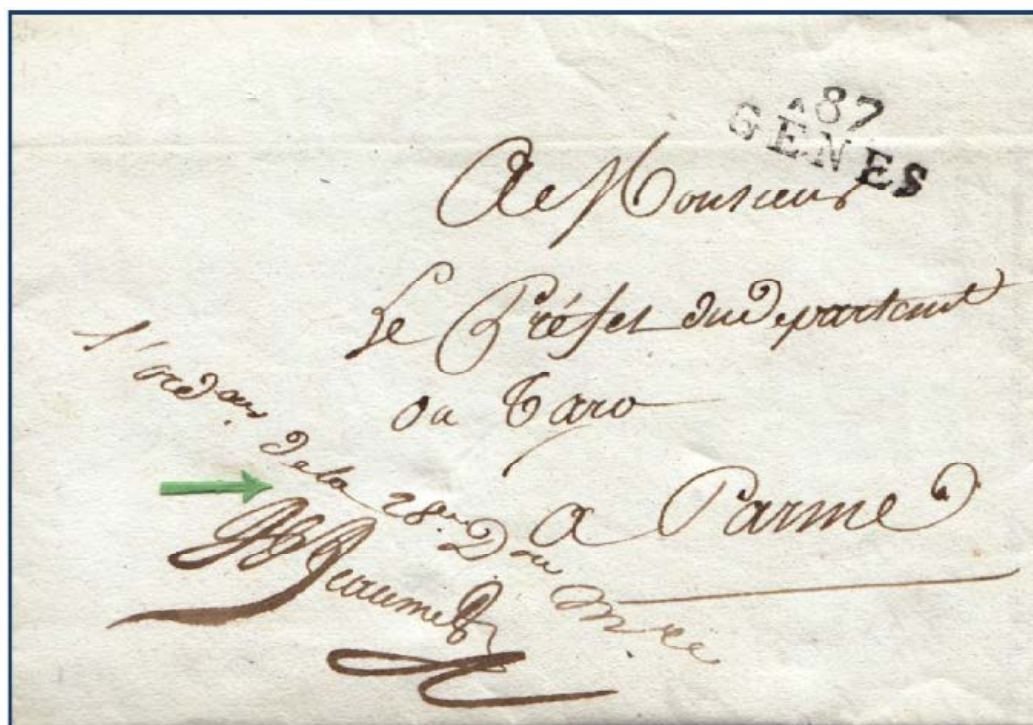 ^87
GENES
A Monsieur
Le Préfet du Departemt
du Taro
a Parme
l'ordon.r de la 28.me Don Mre